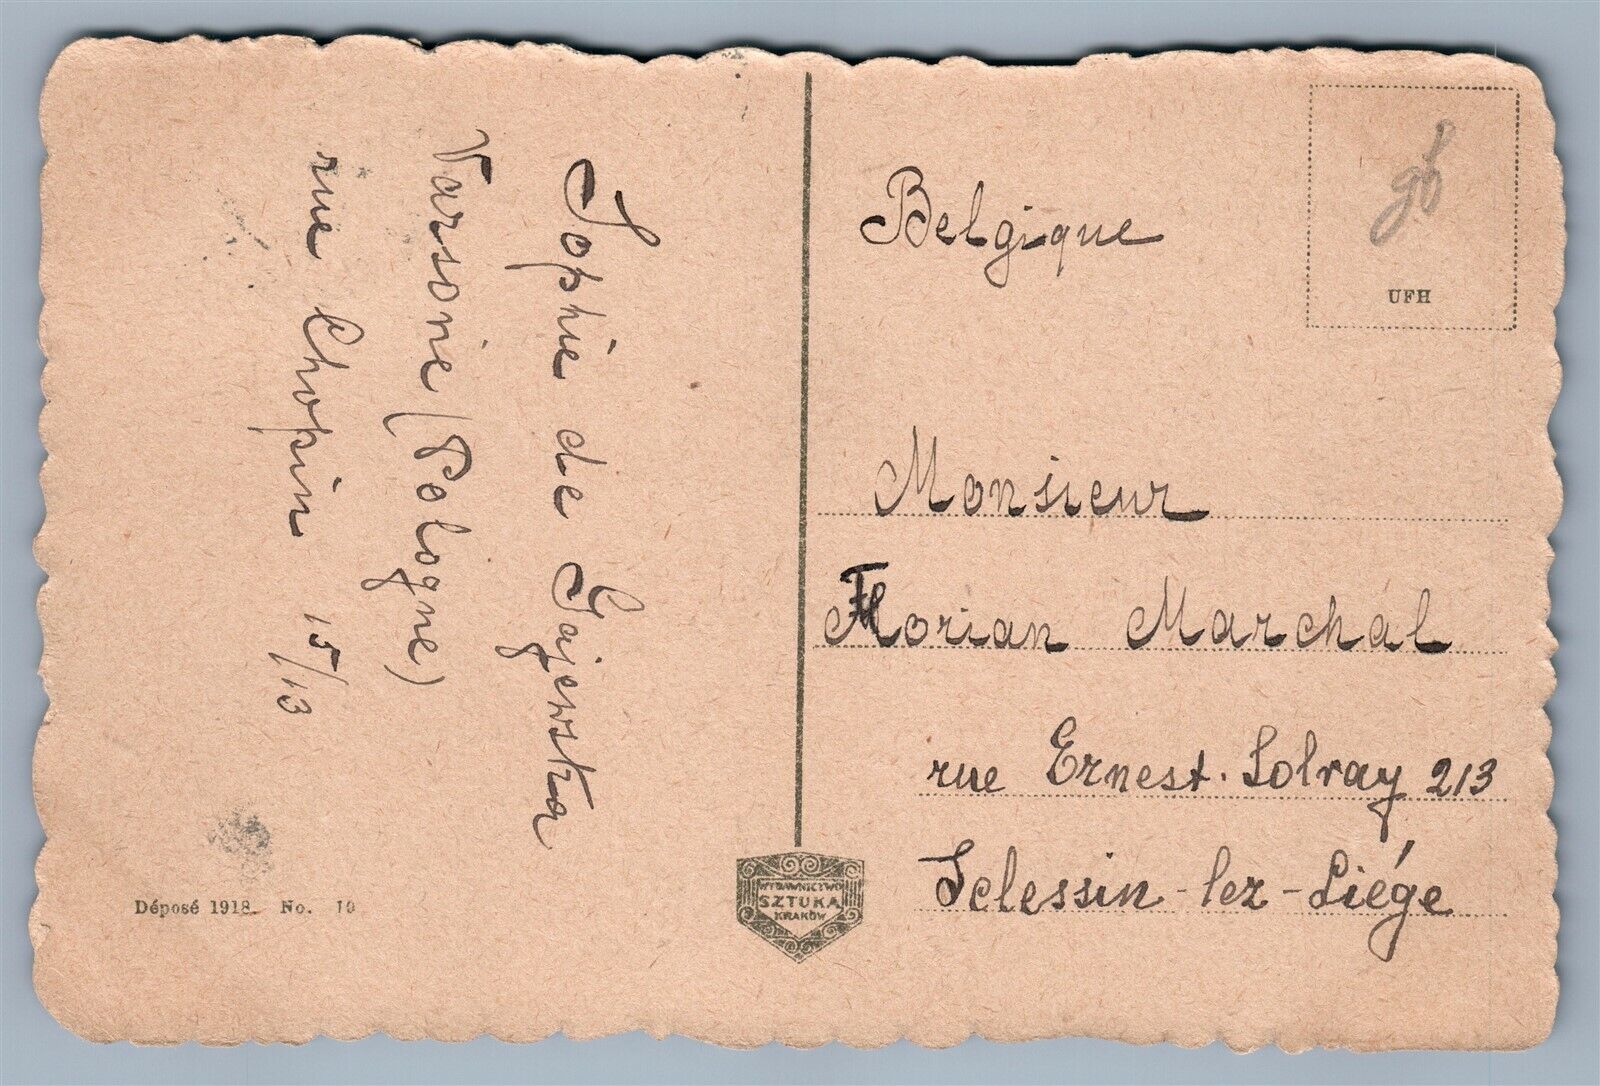 Sophie de Gajewska
Varsovie (Pologne)
rue Chopin 15/13
Déposé 1918. No. 10
WYDAWNICTWO
SZTUKA
KRAKÓW
Belgique
UFH
Monsieur
Florian Marchal
rue Ernest. Solvay 213
Sclessin-lez-Liége